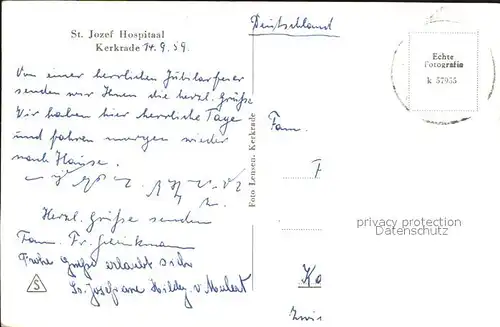 St. Jozef Hospitaal
Kerkrade 14.9.59.
Von einer herrlichen Jubilarfeier
senden wir Ihnen die herzl. Grüße
Wir haben hier herrliche Tage
und fahren morgen wieder
nach Hause.
Herzl. Grüße senden
Fam. Fr.
Frohe Grüße erlaubt sich
v.
S
Foto Lensen, Kerkrade
Deutschland
Echte
Fotografie
k 57955
Fam.
F
privacy protection
Datenschutz
Ko
Zwi